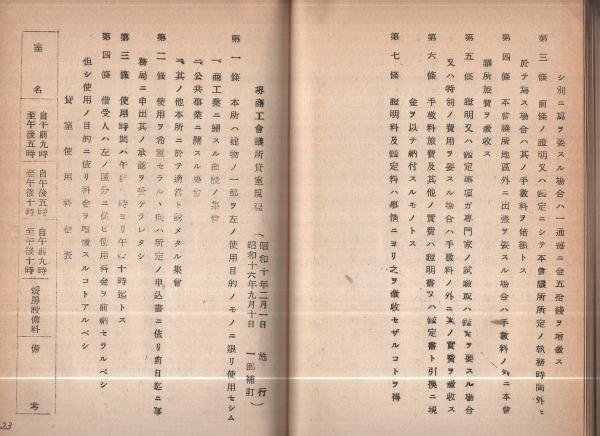 シ別ニ寫ヲ要スル場合ハ一通每ニ金五拾錢ヲ增徵ス
第三條 前條ノ證明又ハ鑑定ニシテ本會議所所定ノ執務時間外ニ
於テ爲ス場合ハ其ノ手數料ヲ倍額トス
第四條 本會議所地區外ニ出張ヲ要スル場合ハ手數料ノ外ニ本會
議所旅費ヲ徵收ス
第五條 證明又ハ鑑定事項ガ專門家ノ試驗取ハ鑑定ヲ要スル場合
又ハ特別ノ費用ヲ要スル場合ハ手數料ノ外ニ其ノ實費ヲ徵收ス
第六條 手數料旅費及其他ノ實費ハ證明書又ハ鑑定書ト引換ニ現
金ヲ以テ納付スルモノトス
第七條 證明料及鑑定料ハ事情ニヨリ之ヲ徵收セザルコトヲ得
商工會議所貸室規程
(昭和十年二月一日 施行
昭和十六年九月十日 一部補訂)
第一條 本所ハ建物ノ一部ヲ左ノ使用目的ノモノニ限リ使用セシム
一、商工業ニ關スル集會
二、公共事業ニ關スル集會
三、其ノ他本所ニ於テ適當ト認メタル集會
第二條 使用ヲ希望セラルヽ向ハ所定ノ申込書ニ依リ前日迄ニ事
務局ニ申出其ノ承認ヲ受ケラレタシ
第三條 使用時間ハ午前九時ヨリ午後十時迄トス
第四條 借受人ハ左ノ區分ニ依ヒ使用料金ヲ前納セラルベシ
但シ使用ノ目的ニ依リ料金ヲ增徵スルコトアルベシ
貸室使用料金表
室名
自午前九時 至午後五時
自午後五時 至午後十時
自午前九時 至午後十時
煖房設備料
備考
23